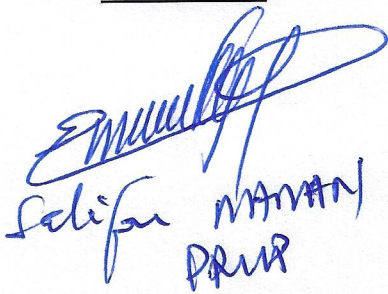 Salifou MAMAN
PRMP